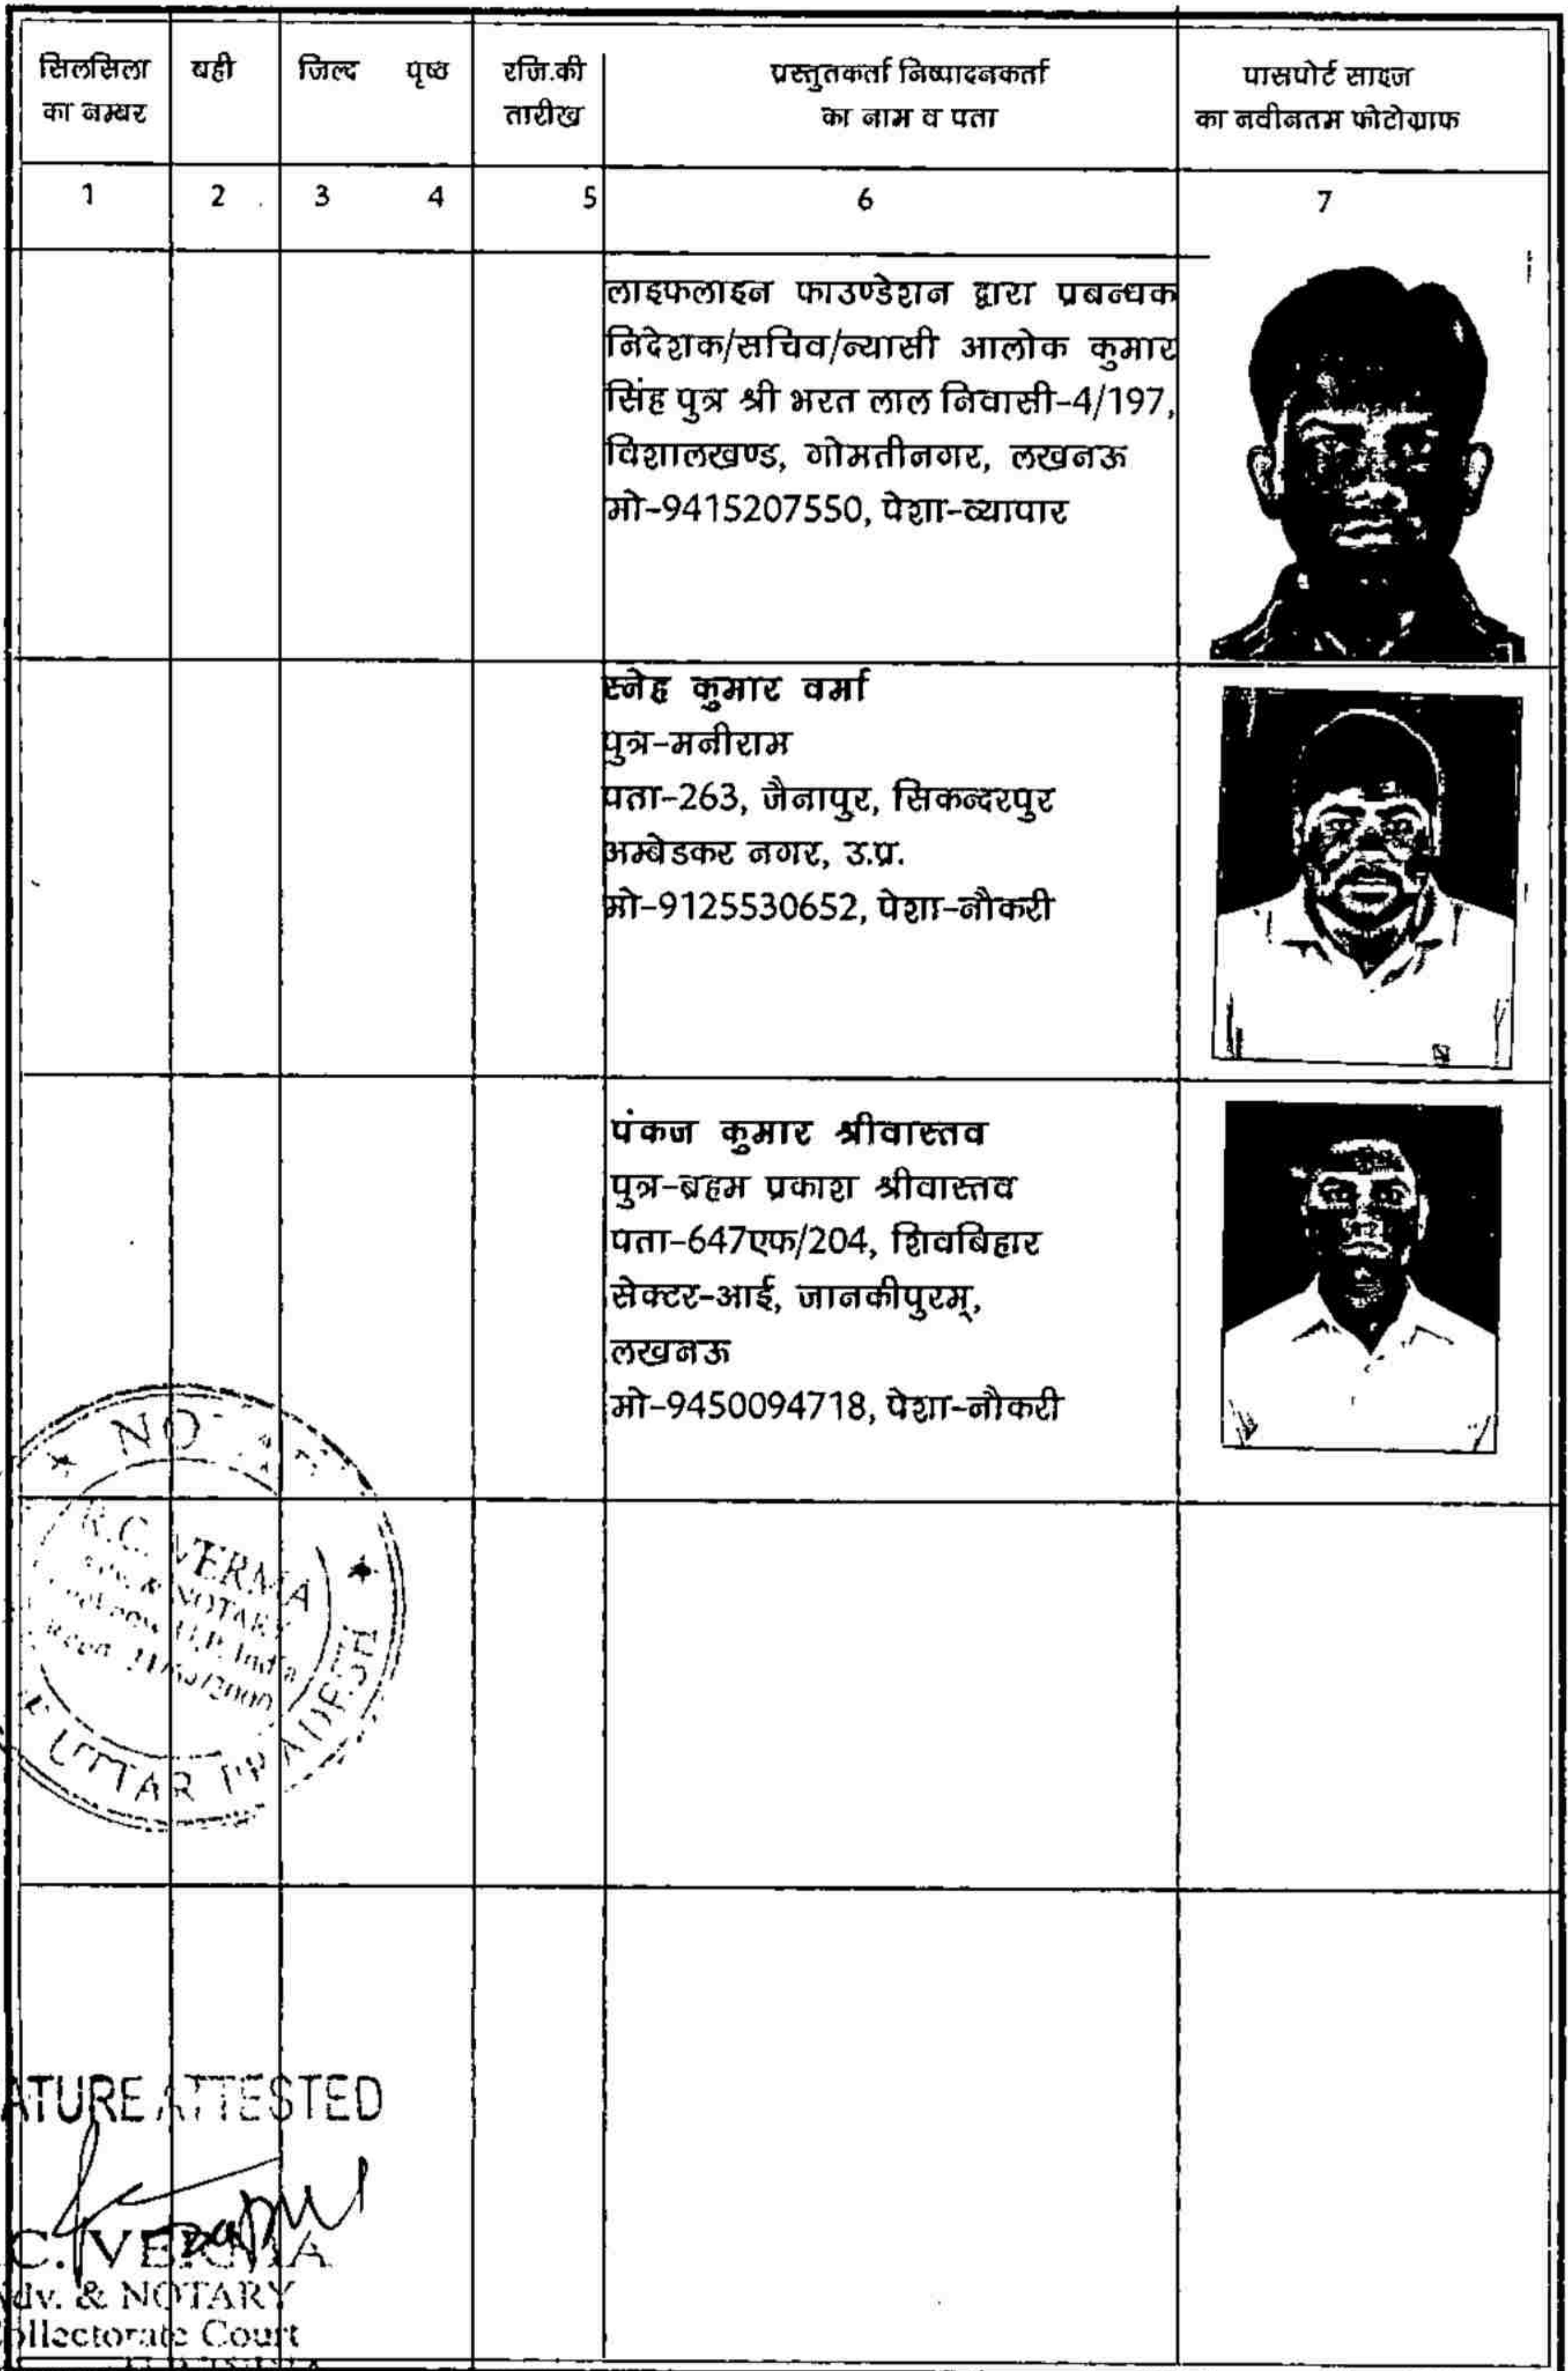 सिलसिला
का नम्बर
बही
जिल्द
पृष्ठ
रजि.की
तारीख
प्रस्तुतकर्ता निष्पादनकर्ता
का नाम व पता
पासपोर्ट साइज
का नवीनतम फोटोग्राफ
1
2
3
4
5
6
7
लाइफलाइन फाउण्डेशन द्वारा प्रबन्धक
निदेशक/सचिव/न्यासी आलोक कुमार
सिंह पुत्र श्री भरत लाल निवासी-4/197,
विशालखण्ड, गोमतीनगर, लखनऊ
मो-9415207550, पेशा-व्यापार
स्नेह कुमार वर्मा
पुत्र-मनीराम
पता-263, जैनापुर, सिकन्दरपुर
अम्बेडकर नगर, उ.प्र.
मो-9125530652, पेशा-नौकरी
पंकज कुमार श्रीवास्तव
पुत्र-ब्रहम प्रकाश श्रीवास्तव
पता-647एफ/204, शिवबिहार
सेक्टर-आई, जानकीपुरम्,
लखनऊ
मो-9450094718, पेशा-नौकरी
R.C. VERMA
& NOTARY
U.P. India
UTTAR PRADESH
ATURE ATTESTED
C. VERMA
dv. & NOTARY
ollectorate Court